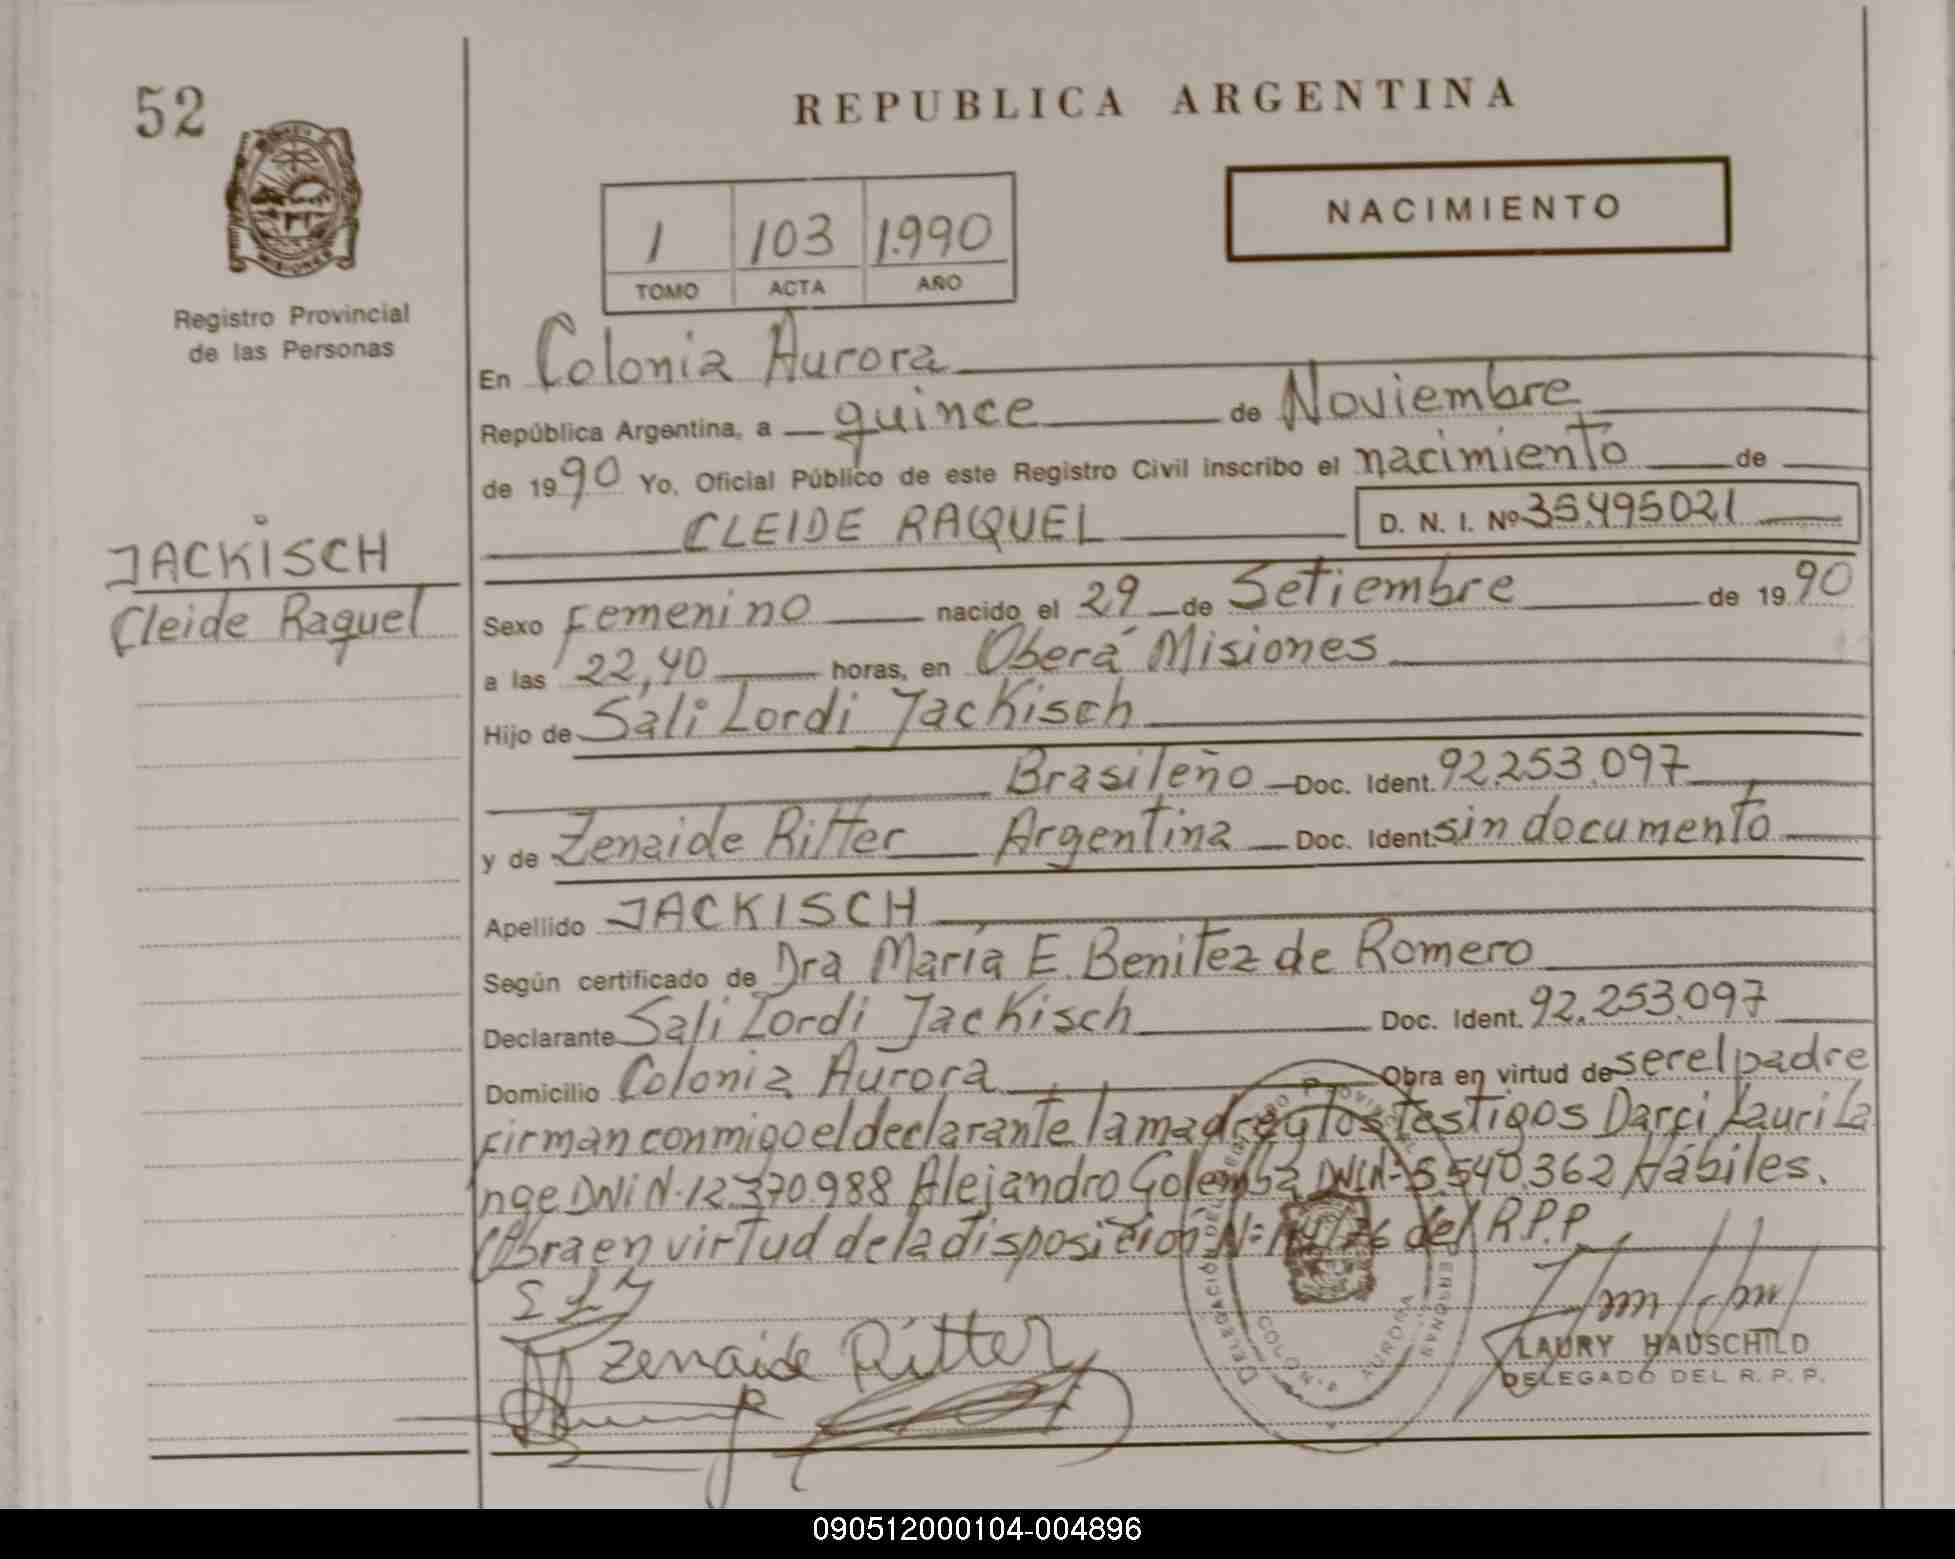 52
REPUBLICA ARGENTINA
NACIMIENTO
1 103 1.990
TOMO ACTA AÑO
MISIONES
Registro Provincial
de las Personas
En Colonia Aurora
República Argentina, a quince de Noviembre
de 1990 Yo, Oficial Público de este Registro Civil inscribo el nacimiento de
CLEIDE RAQUEL D. N. I. Nº 35.495021
JACKISCH
Cleide Raquel
Sexo Femenino nacido el 29 de Setiembre de 1990
a las 22,40 horas, en Oberá Misiones
Hijo de Sali Lordi Jackisch
Brasileño Doc. Ident. 92.253.097
y de Zenaide Ritter Argentina Doc. Ident. sin documento
Apellido JACKISCH
Según certificado de Dra María E. Benitez de Romero
Declarante Sali Lordi Jackisch Doc. Ident. 92.253.097
Domicilio Colonia Aurora Obra en virtud de ser el padre
Firman conmigo el declarante la madre y los testigos Darci Lauri La
nge DNI N. 12.370.988 Alejandro Golemba DNI N= 5.540.362 Hábiles.
Obra en virtud de la disposición N= /76 del R.P.P.
S L J
Zenaide Ritter
LAURY HAUSCHILD
DELEGADO DEL R. P. P.
DELEGACIÓN DEL REGISTRO PROVINCIAL PERSONAS
COLONIA AURORA
090512000104-004896